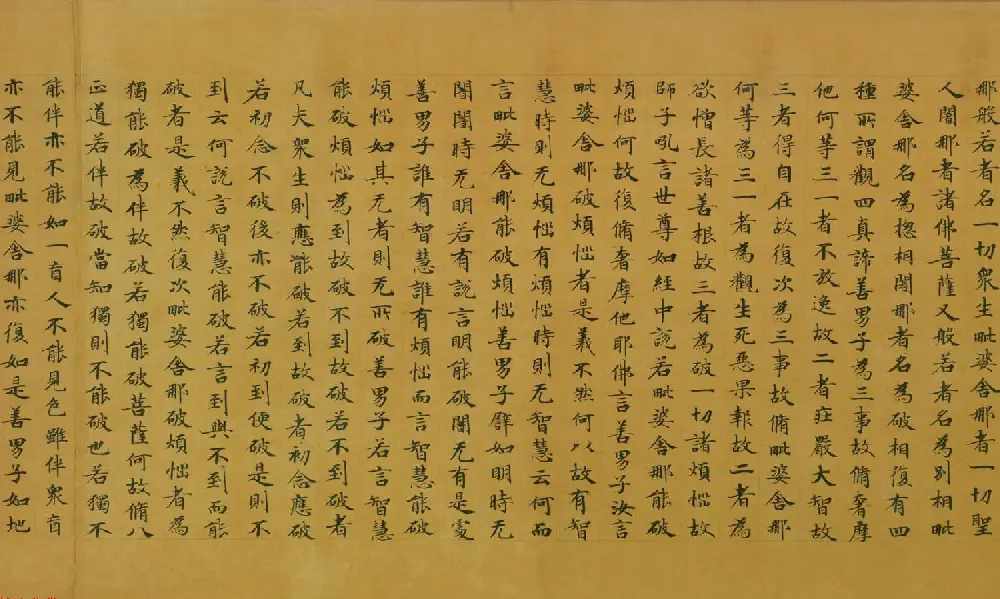 那般若者名一切衆生毗婆舍那者一切聖
人闍那者諸佛菩薩又般若者名為別相毗
婆舍那名為揔相闍那者名為破相復有四
種所謂觀四真諦善男子為三事故脩奢摩
他何等三一者不放逸故二者莊嚴大智故
三者得自在故復次為三事故脩毗婆舍那
何等為三一者為觀生死惡果報故二者為
欲增長諸善根故三者為破一切諸煩惱故
師子吼言世尊如經中說若毗婆舍那能破
煩惱何故復脩奢摩他耶佛言善男子汝言
毗婆舍那破煩惱者是義不然何以故有智
慧時則无煩惱有煩惱時則无智慧云何而
言毗婆舍那能破煩惱善男子譬如明時无
闇闇時无明若有說言明能破闇无有是處
善男子誰有智慧誰有煩惱而言智慧能破
煩惱如其无者則无所破善男子若言智慧
能破煩惱為到故破不到故破若不到破者
凡夫衆生則應能破若到故破者初念應破
若初念不破後亦不破若初到便破是則不
到云何說言智慧能破若言到與不到而能
破者是義不然復次毗婆舍那破煩惱者為
獨能破為伴故破若獨能破菩薩何故脩八
正道若伴故破當知獨則不能破也若獨不
能伴亦不能如一盲人不能見色雖伴衆盲
亦不能見毗婆舍那亦復如是善男子如地